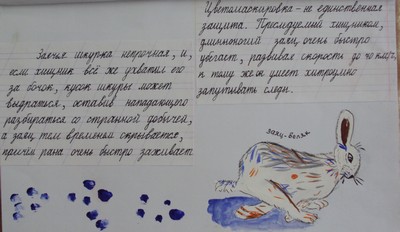 Заячья шкурка непрочная, и,
если хищник всё же ухватил его
за бочок, кусок шкурки может
выдраться, оставив нападающего
разбираться со странной добычей,
а заяц тем временем скрывается,
причём рана очень быстро заживает.
Цветомаскировка - не единственная
защита. Преследуемый хищником,
длинноногий заяц очень быстро
убегает, развивая скорость до 70 км/ч,
к тому же он умеет хитроумно
запутывать следы.
заяц-беляк